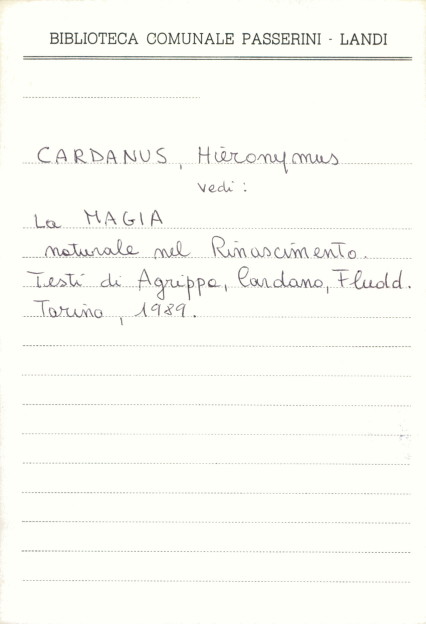 BIBLIOTECA COMUNALE PASSERINI - LANDI
CARDANUS, Hieronymus
vedi:
La MAGIA
naturale nel Rinascimento.
Testi di Agrippa, Cardano, Fludd.
Torino, 1989.